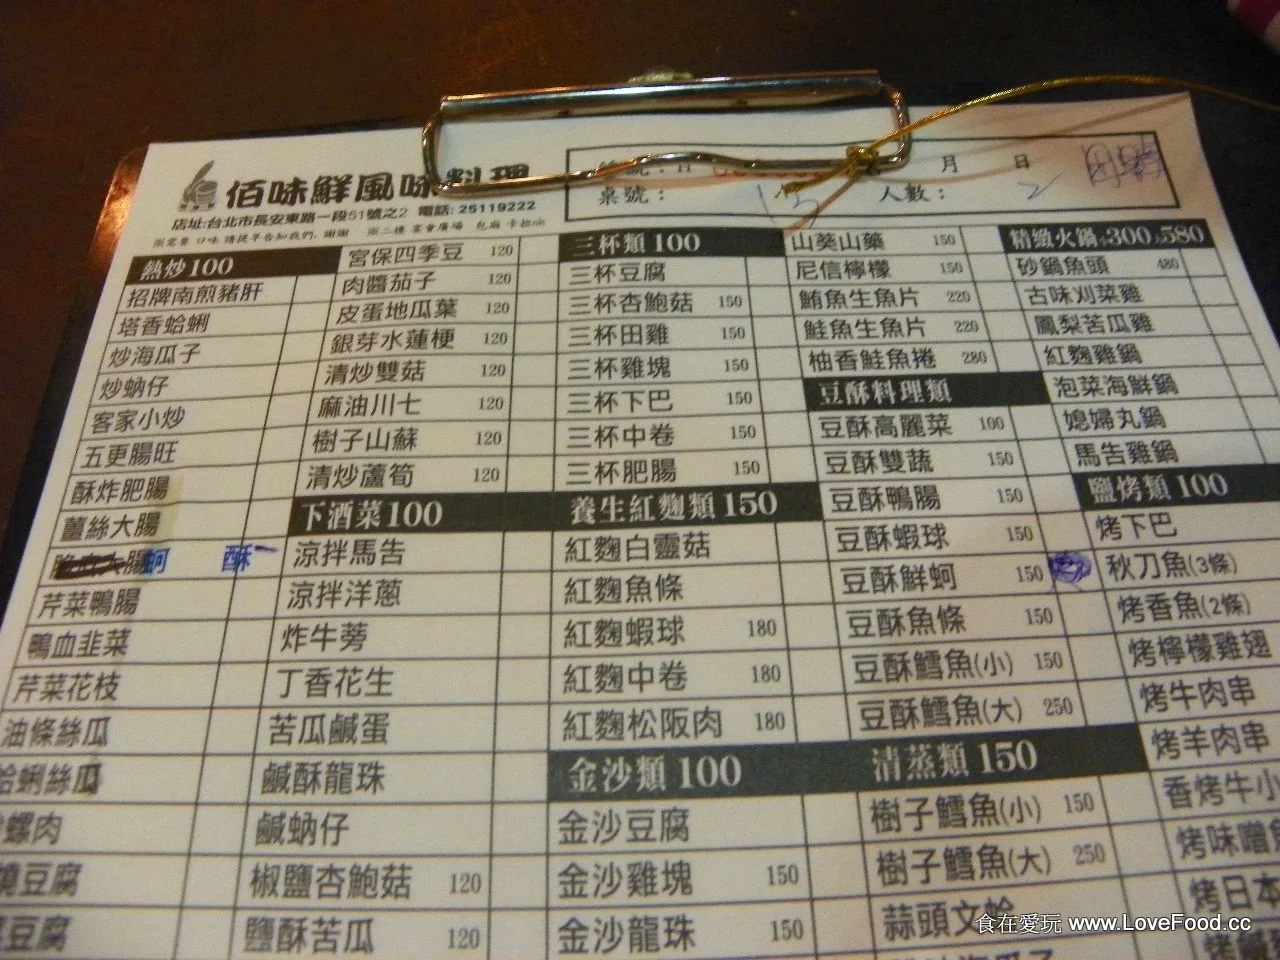 佰味鮮風味料理
店址:台北市長安東路一段51號之2 電話: 25119222
桌號: 15 人數: 2
月 日
熱炒100
招牌南煎豬肝
塔香蛤蜊
炒海瓜子
炒蚋仔
客家小炒
五更腸旺
酥炸肥腸
薑絲大腸
蚵 酥
芹菜鴨腸
鴨血韭菜
芹菜花枝
油條絲瓜
蛤蜊絲瓜
螺肉
燒豆腐
豆腐
宮保四季豆 120
肉醬茄子 120
皮蛋地瓜葉 120
銀芽水蓮梗 120
清炒雙菇 120
麻油川七 120
樹子山蘇 120
清炒蘆筍 120
下酒菜100
涼拌馬告
涼拌洋蔥
炸牛蒡
丁香花生
苦瓜鹹蛋
鹹酥龍珠
鹹蚋仔
椒鹽杏鮑菇 120
鹽酥苦瓜 120
三杯類100
三杯豆腐
三杯杏鮑菇 150
三杯田雞 150
三杯雞塊 150
三杯下巴 150
三杯中卷 150
三杯肥腸 150
養生紅麴類150
紅麴白靈菇
紅麴魚條
紅麴蝦球 180
紅麴中卷 180
紅麴松阪肉 180
金沙類100
金沙豆腐
金沙雞塊 150
金沙龍珠 150
山葵山藥 150
尼信檸檬 150
鮪魚生魚片 220
鮭魚生魚片 220
柚香鮭魚捲 280
豆酥料理類
豆酥高麗菜 100
豆酥雙蔬 150
豆酥鴨腸 150
豆酥蝦球 150
豆酥鮮蚵 150
豆酥魚條 150
豆酥鱈魚(小) 150
豆酥鱈魚(大) 250
清蒸類150
樹子鱈魚(小) 150
樹子鱈魚(大) 250
蒜頭文蛤
精緻火鍋小300大580
砂鍋魚頭 480
古味刈菜雞
鳳梨苦瓜雞
紅麴雞鍋
泡菜海鮮鍋
媳婦丸鍋
馬告雞鍋
鹽烤類100
烤下巴
秋刀魚(3條)
烤香魚(2條)
烤檸檬雞翅
烤牛肉串
烤羊肉串
香烤牛小
烤味噌魚
烤日本
食在愛玩 www.LoveFood.cc